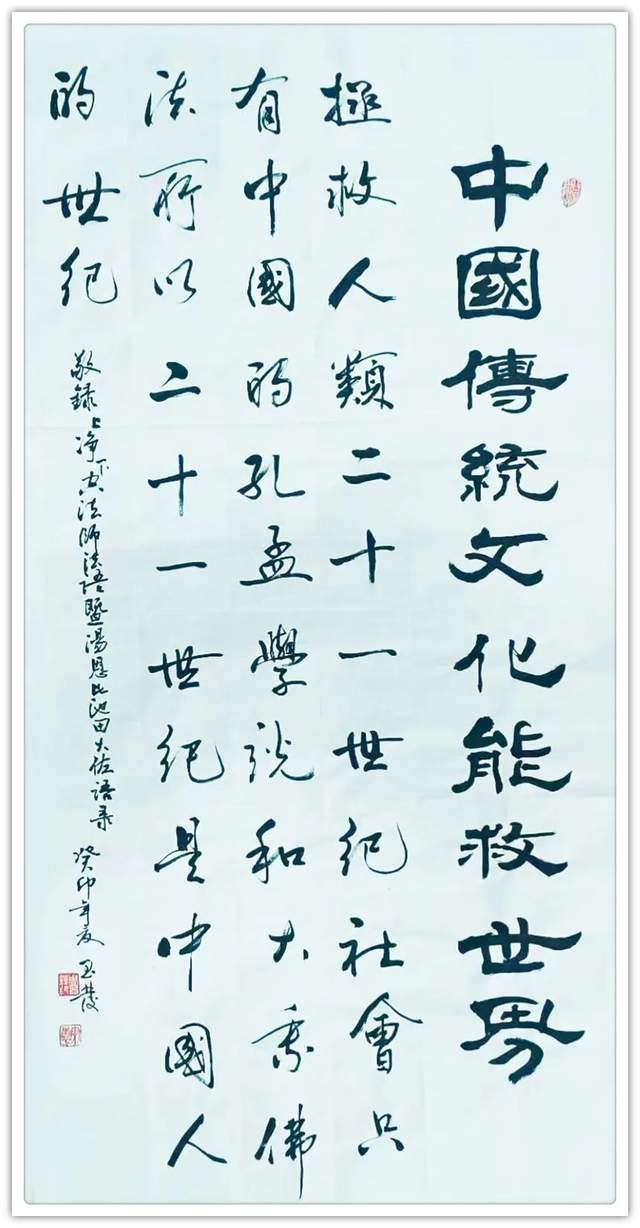 中國傳統文化能救世界
拯救人類二十一世纪社會只
有中國的孔孟學说和大乘佛
法所以二十一世纪是中國人
的世纪
敬録上净下空法師法语暨湯恩比池田大佐语录
癸卯年夏